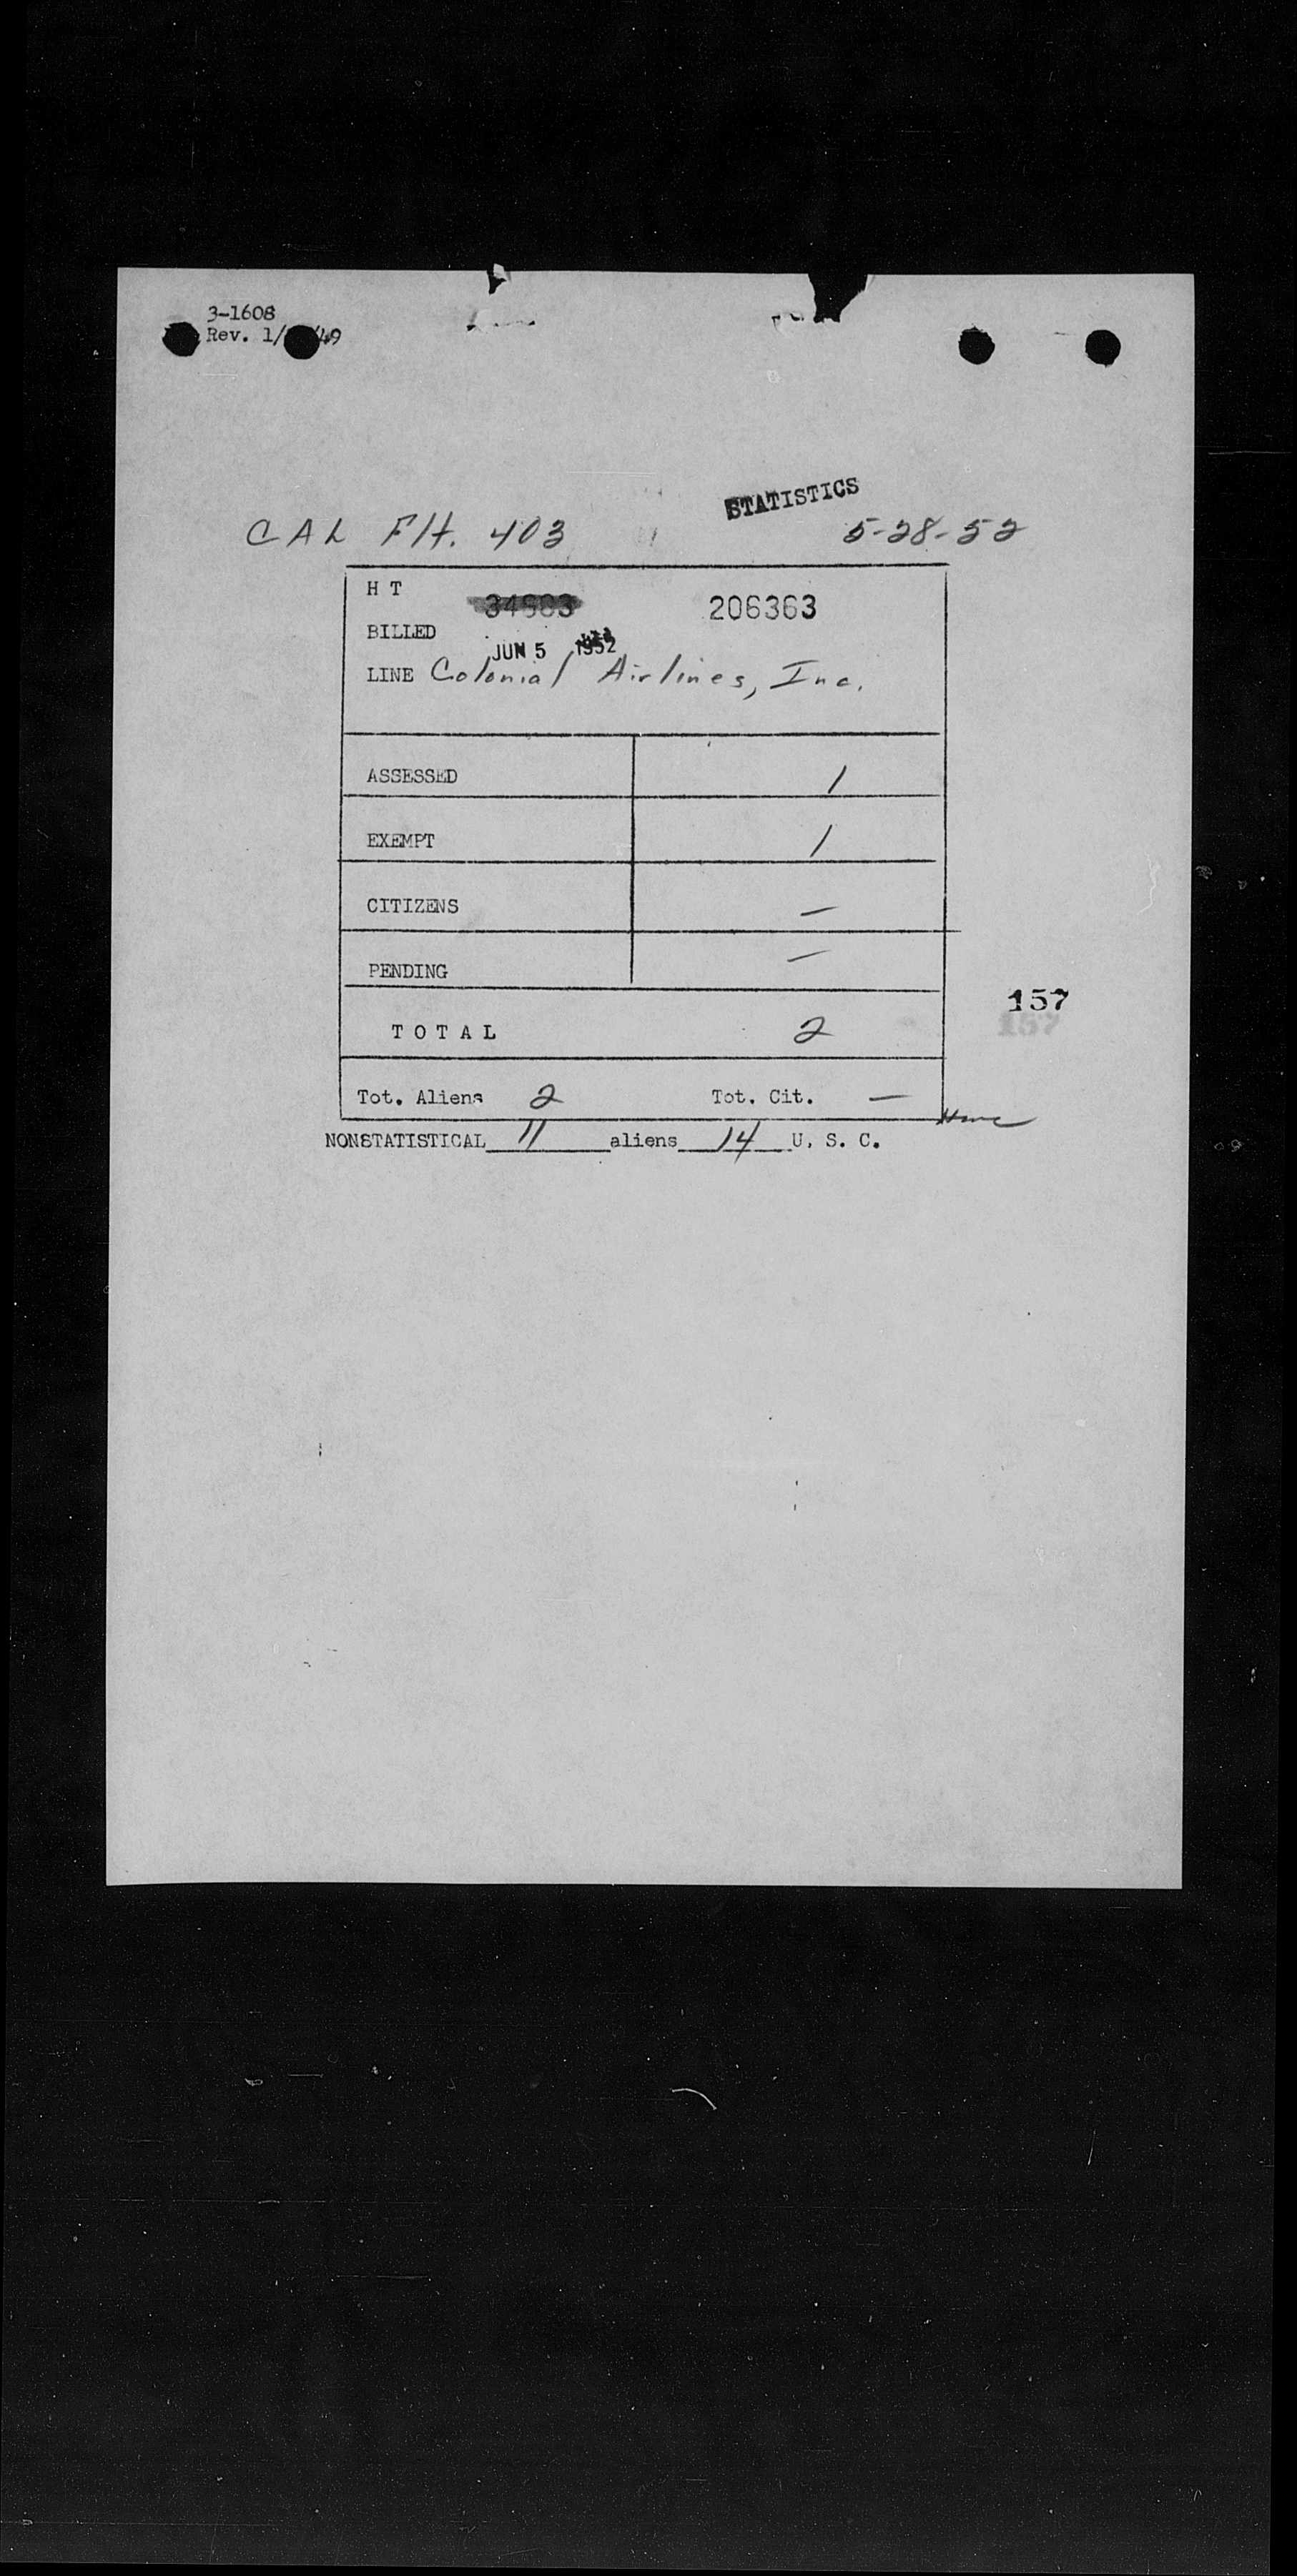 3-1608
Rev. 1/ /49
STATISTICS
CAL Flt. 403 5-28-52
H T 206363
BILLED JUN 5 1952
LINE Colonial Airlines, Inc.
ASSESSED 1
EXEMPT 1
CITIZENS —
PENDING —
157
TOTAL 2
Tot. Aliens 2 Tot. Cit. —
NONSTATISTICAL 11 aliens 14 U. S. C.